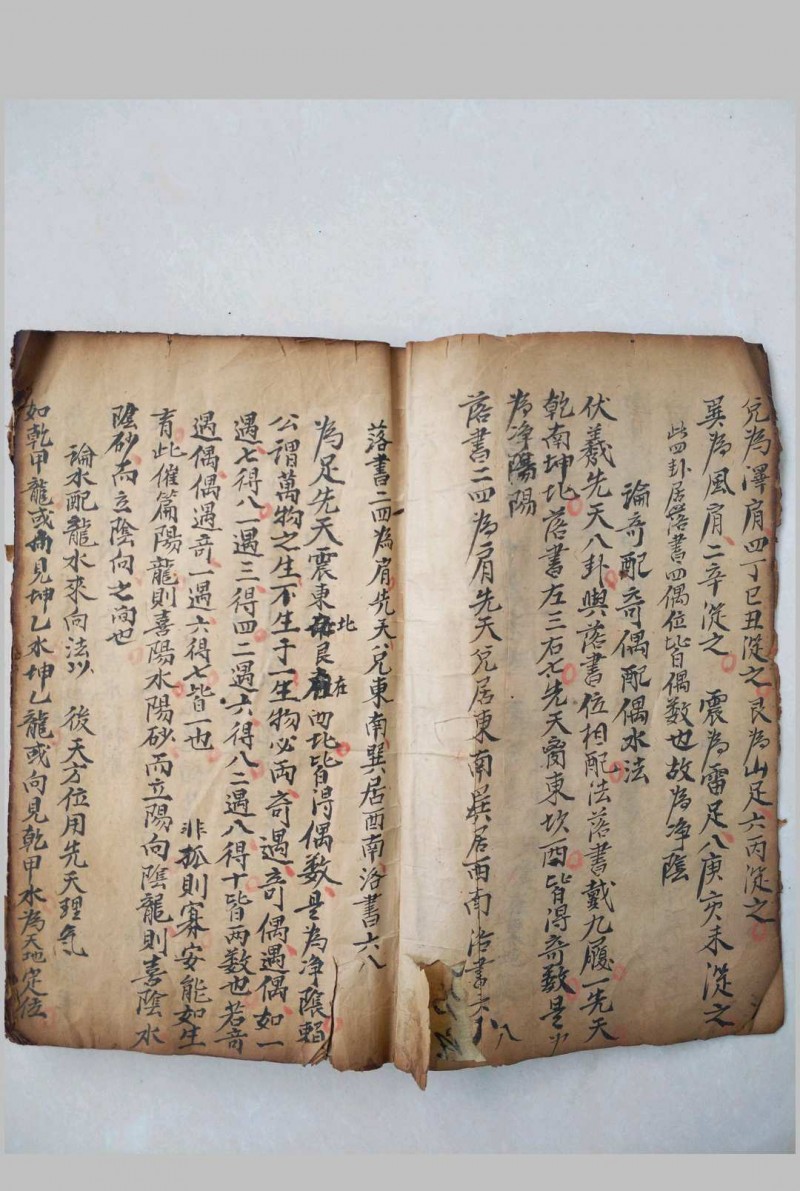 兌為澤肩四丁巳丑從之 艮為山足六丙從之
巽為風肩二辛從之 震為雷足八庚亥未從之
此四卦居落書四偶位皆偶数也故為净陰
論竒配竒偶配偶水法
伏羲先天八卦與落書位相配法落書戴九履一先天
乾南坤北落書左三右七先天离東坎酉皆淂竒数是以
為净陽陽
落書二四為肩先天兌居東南巽居西南洛書六八
落書二四為肩先天兌東南巽居酉南洛書六八
為足先天震東北艮在西北皆淂偶数是為净陰賴
公谓萬物之生不生于一生物必两竒遇竒偶遇偶如一
遇七得八一遇三得四二遇六得八二遇八得十皆两数也若竒
遇偶偶遇竒一遇六得七皆一也 非孤則寡安能如生
育此催篇陽龍則喜陽水陽砂而立陽向陰龍則喜陰水
陰砂而立陰向之间也
論水配龍水來向法以 後天方位用先天理氣
如乾甲龍或向見坤乙水坤乙龍或向見乾甲水為天地定位